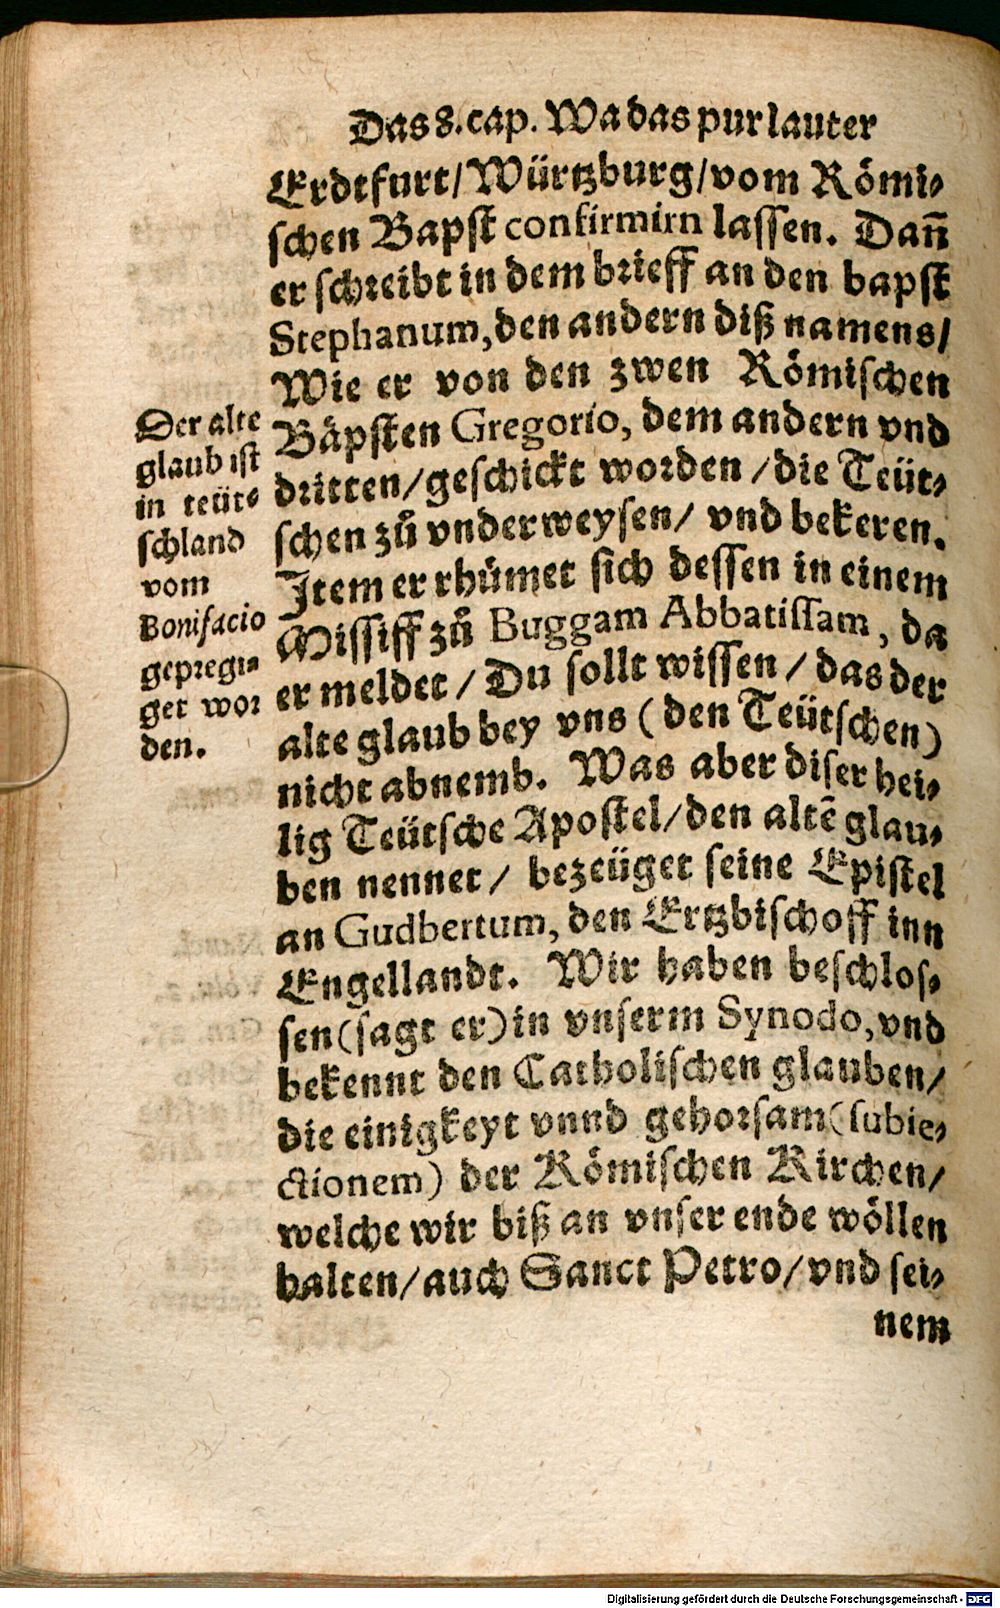 Das 8. cap. Wa das pur lauter
Erdtfurt/ Würtzburg/ vom Römi⸗
schen Bapst confirmirn lassen. Dañ
er schreibt in dem brieff an den bapst
Stephanum, den andern diß namens/
Wie er von den zwen Römischen
Bäpsten Gregorio, dem andern vnd
dritten/ geschickt worden/ die Teüt⸗
schen zů vnderweysen/ vnd bekeren.
Item er rhümet sich dessen in einem
Missiff zů Buggam Abbatissam, da
er meldet/ Du sollt wissen/ das der
alte glaub bey vns (den Teütschen)
nicht abnemb. Was aber diser hei⸗
lig Teütsche Apostel/ den altē glau⸗
ben nennet/ bezeüget seine Epistel
an Gudbertum, den Ertzbischoff inn
Engellandt. Wir haben beschlos⸗
sen (sagt er) in vnserm Synodo, vnd
bekennt den Catholischen glauben/
die einigkeyt vnnd gehorsam (subie⸗
ctionem) der Römischen Kirchen/
welche wir biß an vnser ende wöllen
halten/ auch Sanct Petro/ vnd sei⸗
nem
Der alte
glaub ist
in teüt⸗
schland
vom
Bonifacio
gepredi⸗
get wor
den.
Digitalisierung gefördert durch die Deutsche Forschungsgemeinschaft - DFG